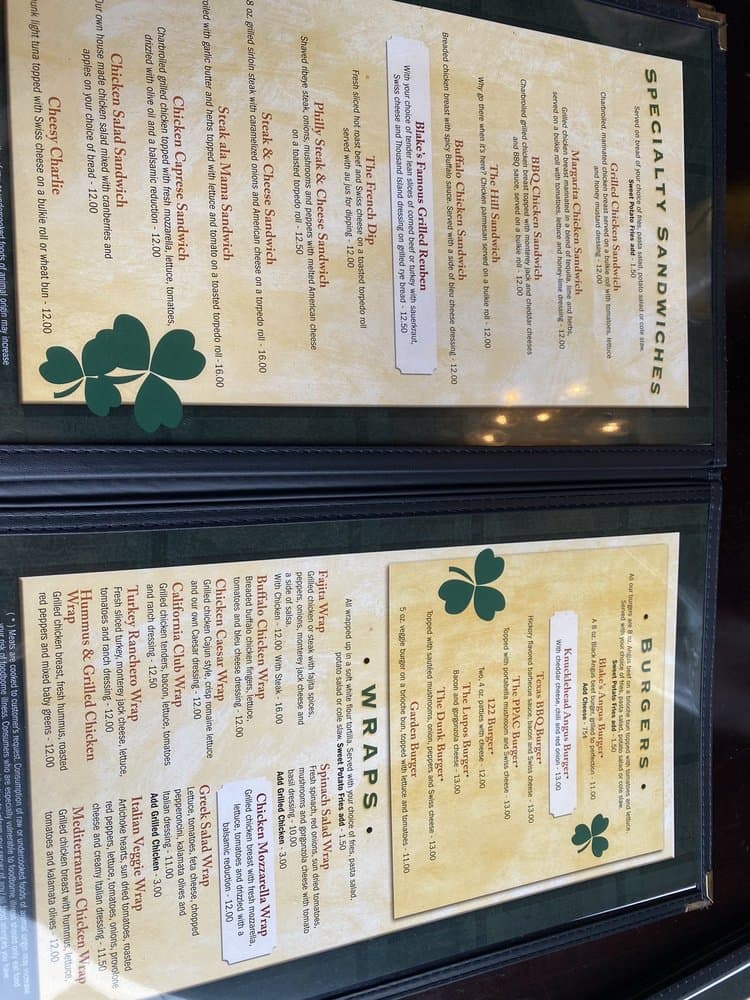 SPECIALTY SANDWICHES
Served on bread of your choice of fries, pasta salad, potato salad or cole slaw.
Sweet Potato Fries add - 1.50
Grilled Chicken Sandwich
Charbroiled, marinated chicken breast served on a bulkie roll with tomatoes, lettuce
and honey mustard dressing - 12.00
Margarita Chicken Sandwich
Grilled chicken breast marinated in a blend of tequila, lime and herbs,
served on a bulkie roll with tomatoes, lettuce and honey-lime dressing - 12.00
BBQ Chicken Sandwich
Charbroiled grilled chicken breast topped with monterey jack and cheddar cheeses
and BBQ sauce, served on a bulkie roll - 12.00
The Hill Sandwich
Why go there when it's here? Chicken parmesan served on a bulkie roll - 12.00
Buffalo Chicken Sandwich
Breaded chicken breast with spicy Buffalo sauce. Served with a side of bleu cheese dressing - 12.00
Blake's Famous Grilled Reuben
With your choice of tender lean slices of corned beef or turkey with sauerkraut,
Swiss cheese and Thousand Island dressing on grilled rye bread - 12.50
The French Dip
Fresh sliced hot roast beef and Swiss cheese on a toasted torpedo roll
served with au jus for dipping - 12.00
Philly Steak & Cheese Sandwich
Shaved ribeye steak, onions, mushrooms and peppers with melted American cheese
on a toasted torpedo roll - 12.50
Steak & Cheese Sandwich
8 oz. grilled sirloin steak with caramelized onions and American cheese on a torpedo roll - 16.00
Steak ala Mama Sandwich
oiled with garlic butter and herbs topped with lettuce and tomato on a toasted torpedo roll - 16.00
Chicken Caprese Sandwich
Charbroiled grilled chicken topped with fresh mozzarella, lettuce, tomatoes,
drizzled with olive oil and a balsamic reduction - 12.00
Chicken Salad Sandwich
Our own house made chicken salad mixed with cranberries and
apples on your choice of bread - 12.00
Cheesy Charlie
hunk light tuna topped with Swiss cheese on a bulkie roll or wheat bun - 12.00
undercooked foods of animal origin may increase
• BURGERS •
All our burgers are 8 oz. Angus beef on a brioche bun, topped with tomatoes and lettuce.
Served with your choice of fries, pasta salad, potato salad or cole slaw.
Sweet Potato Fries add - 1.50
Blake's Angus Burger*
A 8 oz. Black Angus beef burger, grilled to perfection - 11.00
Add Cheese - .75¢
Knucklehead Angus Burger*
With cheddar cheese, chili and red onion - 13.00
Texas BBQ Burger*
Hickory flavored barbecue sauce, bacon and Swiss cheese - 13.00
The PPAC Burger*
Topped with portabella mushroom and Swiss cheese - 13.00
122 Burger*
Two, 4 oz. patties with cheese - 12.00
The Lupos Burger*
Bacon and gorgonzola cheese - 13.00
The Dunk Burger*
Topped with sautéed mushrooms, onion, peppers and Swiss cheese - 13.00
Garden Burger
5 oz. veggie burger on a brioche bun, topped with lettuce and tomatoes - 11.00
• WRAPS •
All wrapped up in a soft white flour tortilla. Served with your choice of fries, pasta salad,
potato salad or cole slaw. Sweet Potato Fries add - 1.50
Fajita Wrap
Grilled chicken or steak with fajita spices,
peppers, onions, monterey jack cheese and
a side of salsa.
With Chicken - 12.00 With Steak - 16.00
Buffalo Chicken Wrap
Breaded buffalo chicken fingers, lettuce,
tomatoes and bleu cheese dressing - 12.00
Chicken Caesar Wrap
Grilled chicken Cajun style, crisp romaine lettuce
and our own Caesar dressing - 12.00
California Club Wrap
Grilled chicken tenders, bacon, lettuce, tomatoes
and ranch dressing - 12.50
Turkey Ranchero Wrap
Fresh sliced turkey, monterey jack cheese, lettuce,
tomatoes and ranch dressing - 12.00
Hummus & Grilled Chicken
Wrap
Grilled chicken breast, fresh hummus, roasted
red peppers and mixed baby greens - 12.00
Spinach Salad Wrap
Fresh spinach, red onions, sun dried tomatoes,
mushrooms and gorgonzola cheese with tomato
basil dressing - 10.00
Add Grilled Chicken - 3.00
Chicken Mozzarella Wrap
Grilled chicken breast with fresh mozzarella,
lettuce, tomatoes and drizzled with a
balsamic reduction - 12.00
Greek Salad Wrap
Lettuce, tomatoes, feta cheese, chopped
pepperoncini, kalamata olives and
Italian dressing - 11.00
Add Grilled Chicken - 3.00
Italian Veggie Wrap
Artichoke hearts, sun dried tomatoes, roasted
red peppers, lettuce, tomatoes, onions, provolone
cheese and creamy Italian dressing - 11.50
Mediterranean Chicken Wrap
Grilled chicken breast with hummus, lettuce,
tomatoes and kalamata olives - 12.00
( * ) Meats are cooked to customer's request. Consumption of raw or undercooked foods of animal origin may increase
your risk of foodborne illness. Consumers who are especially vulnerable to foodborne illness should only eat food